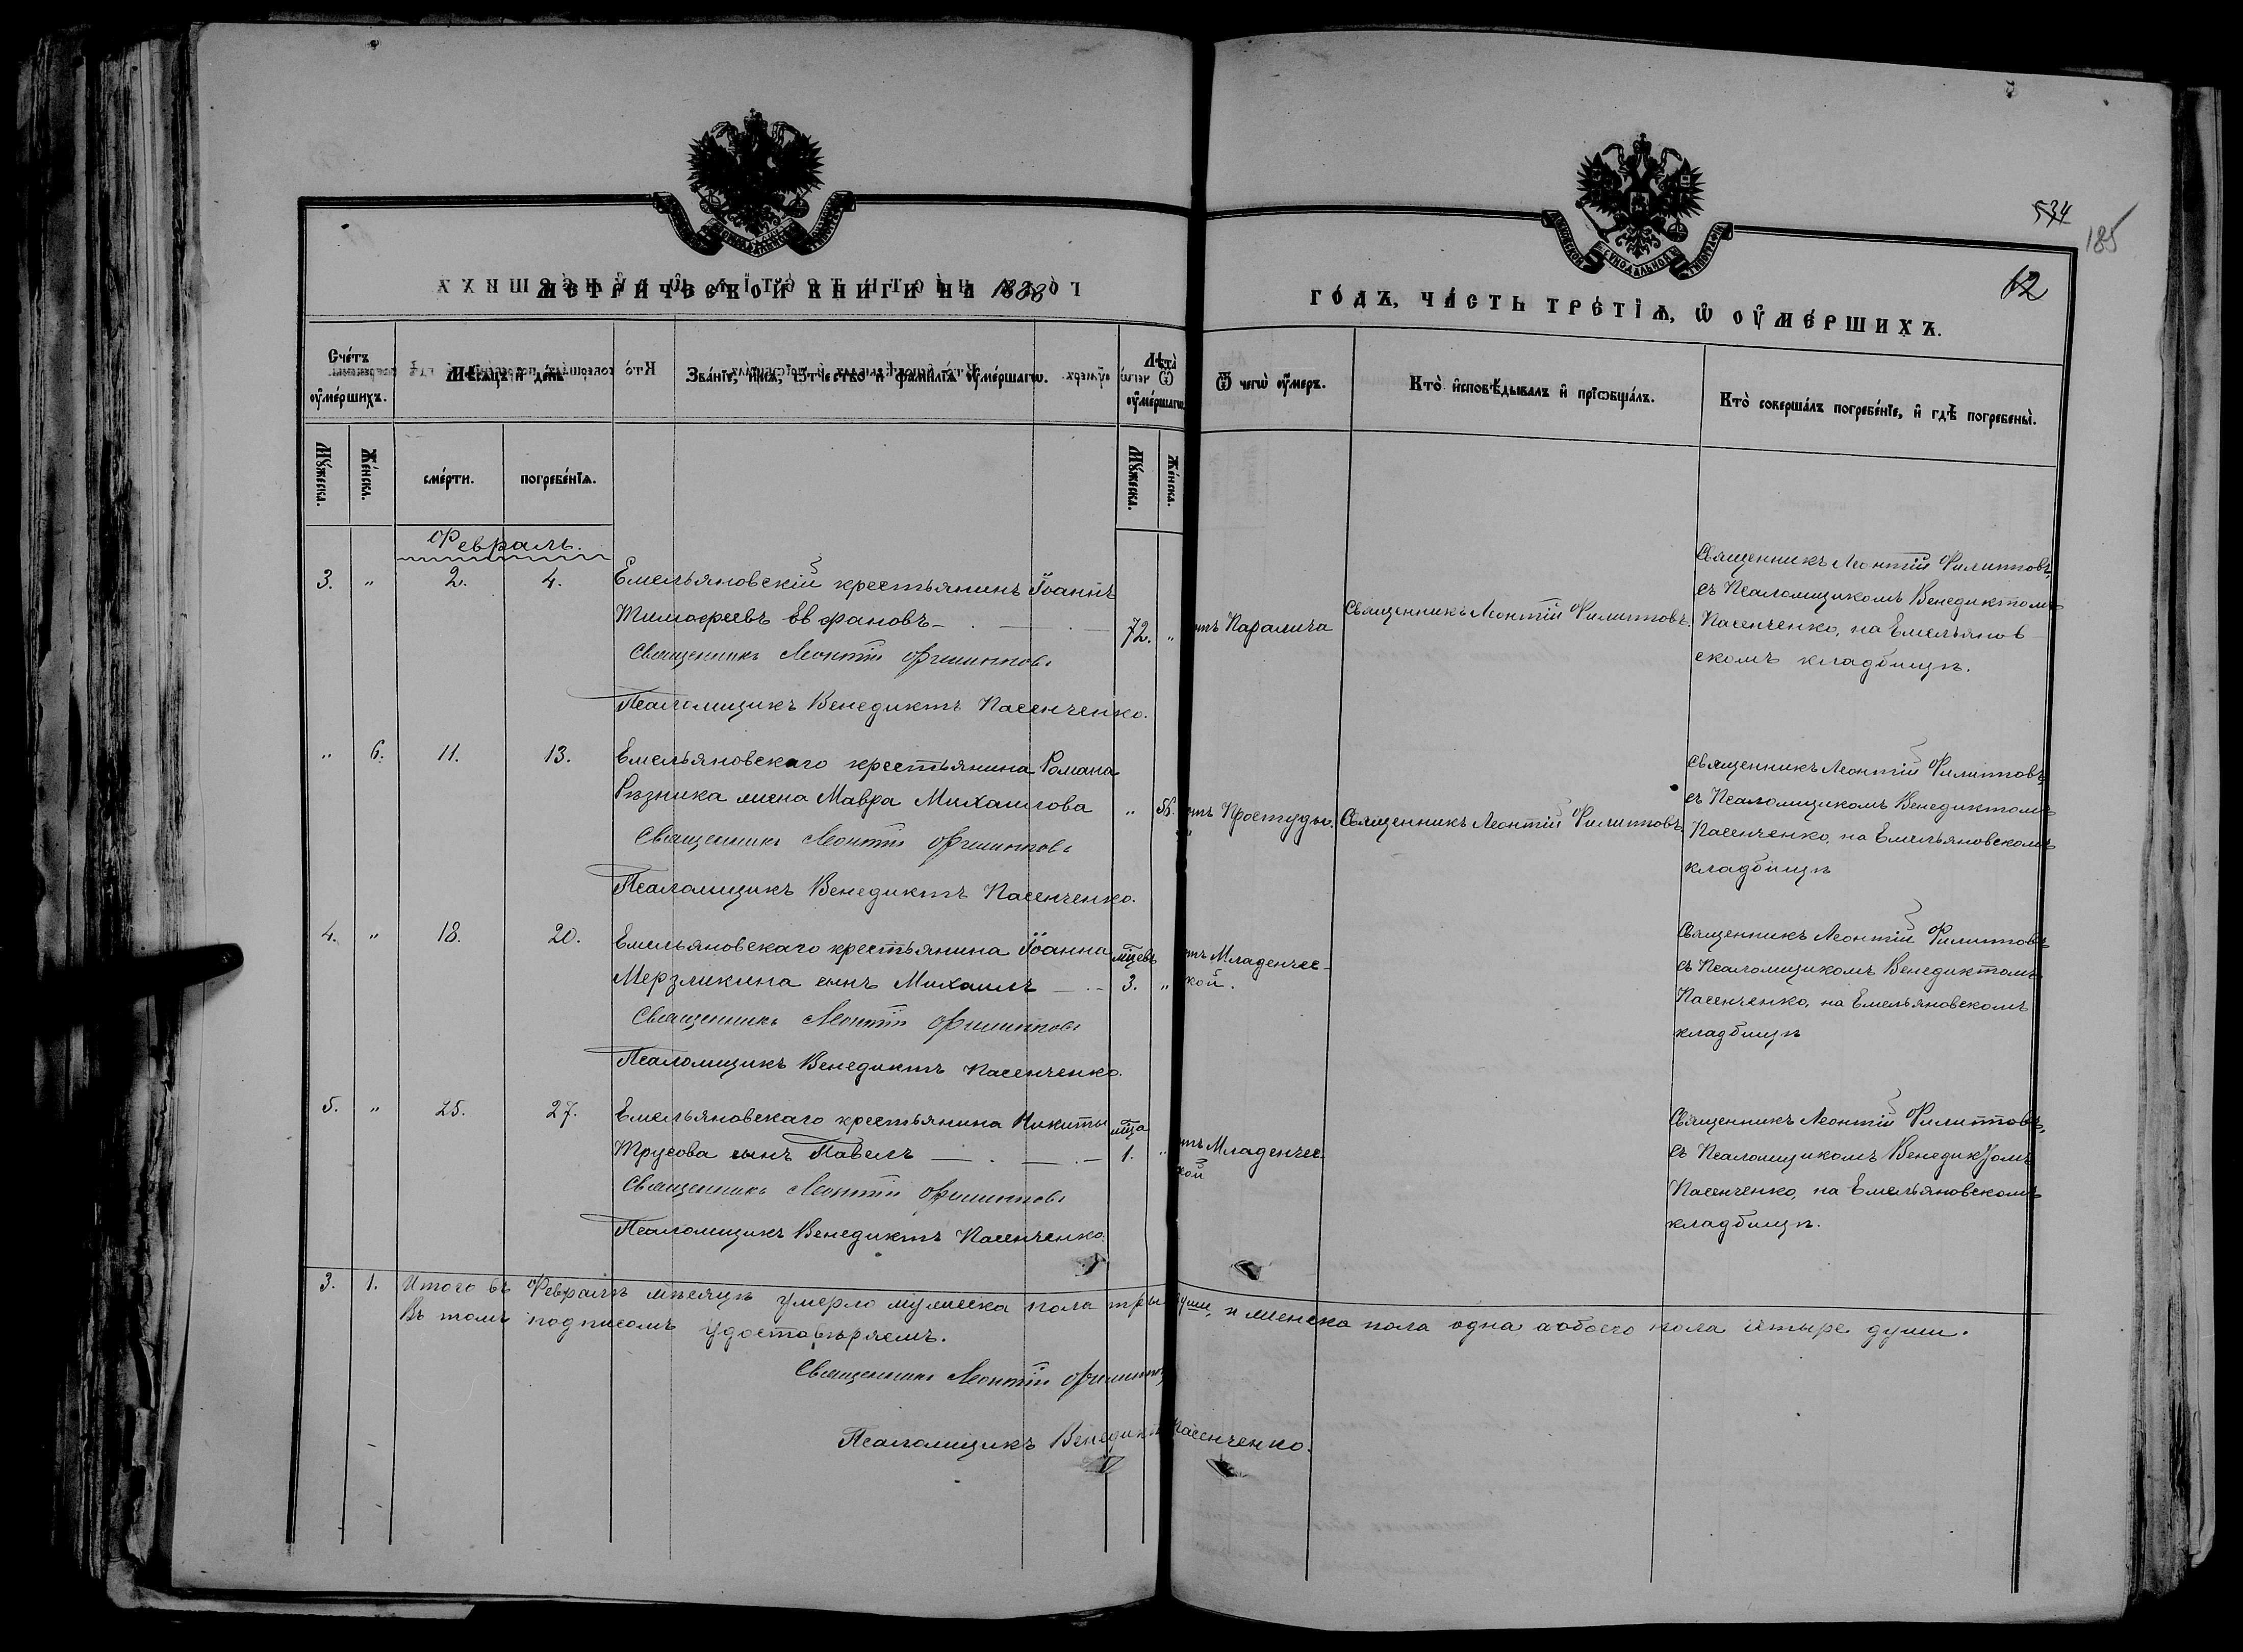 534
185
12
МЕТРИЧЕСКОЙ КНИГИ НА 1888
ГО́ДЪ, ЧА́СТЬ ТРЕ́ТІѦ, Ѡ ОУ҆МЕ́РШИХЪ.
Сче́тъ оу҆ме́ршихъ.
Мѣ́сяцъ и҆ де́нь
Зва́нїе, и҆́мѧ, ѻ҆́тчество и҆ фами́лїѧ оу҆ме́ршагѡ.
Лѣ́та оу҆ме́ршагѡ
Ѿ чегѡ̀ оу҆́меръ.
Кто̀ и҆сповѣ́дывалъ и҆ прїѻбща́лъ.
Кто̀ соверша́лъ погребе́нїе, и҆ гдѣ̀ погребены̀.
Мꙋ́жеска.
Же́нска.
сме́рти.
погребе́нїѧ.
Мꙋ́жеска.
Же́нска.
Февраль.
3. " 2. 4. Емельяновскій крестьянинъ Іоаннъ
Тимофеевъ Евфановъ 72. "
Священникъ Леонтій Филипповъ
Псаломщикъ Венедиктъ Пасенченко.
отъ Паралича
Священникъ Леонтій Филипповъ.
Священникъ Леонтій Филипповъ,
съ Псаломщикомъ Венедиктомъ
Пасенченко, на Емельянов
скомъ кладбищѣ.
" 6. 11. 13. Емельяновскаго крестьянина Романа
Рѣзника жена Мавра Михаилова " 56.
Священникъ Леонтій Филипповъ
Псаломщикъ Венедиктъ Пасенченко.
отъ Простуды.
Священникъ Леонтій Филипповъ
Священникъ Леонтій Филипповъ,
съ Псаломщикомъ Венедиктомъ
Пасенченко, на Емельяновскомъ
кладбищѣ
4. " 18. 20. Емельяновскаго крестьянина Іоанна мцевъ
Мерзликина сынъ Михаилъ 3. "
Священникъ Леонтій Филипповъ
Псаломщикъ Венедиктъ Пасенченко.
отъ Младенчес-
кой.
Священникъ Леонтій Филипповъ
съ Псаломщикомъ Венедиктомъ
Пасенченко, на Емельяновскомъ
кладбищѣ
5. " 25. 27. Емельяновскаго крестьянина Никиты мца
Трусова сынъ Павелъ 1. "
Священникъ Леонтій Филипповъ
Псаломщикъ Венедиктъ Пасенченко.
отъ Младенчес
кой
Священникъ Леонтій Филипповъ,
съ Псаломщикомъ Венедиктомъ
Пасенченко, на Емельяновскомъ
кладбищѣ.
3. 1. Итого въ Февралѣ мѣсяцѣ умерло мужеска пола три души, и женска пола одна а обоего пола четыре души.
Въ томъ подписомъ удостовѣряемъ.
Священникъ Леонтій Филиппов
Псаломщикъ Венедиктъ Пасенченко.